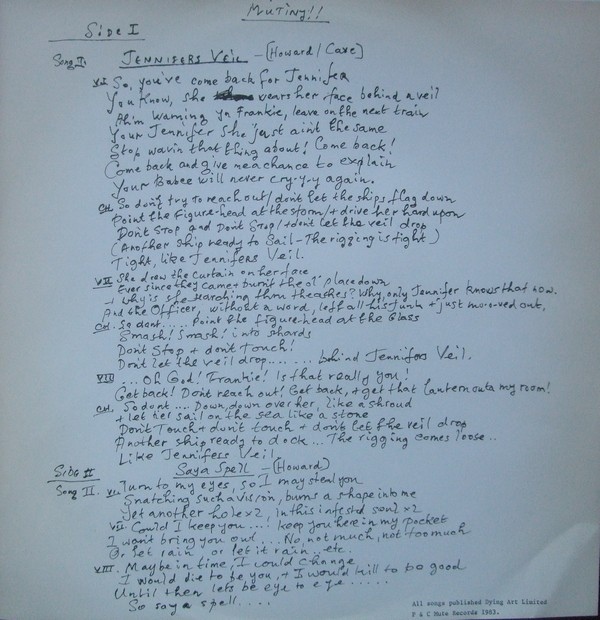 Mutiny!!
Side I
Song I. Jennifers Veil - (Howard/Cave)
V.I So, you've come back for Jennifer
You know, she wears her face behind a veil
Ah'm warning ya Frankie, leave on the next train
Your Jennifer she just aint the same
Stop wavin that thing about! Come back!
Come back and give me a chance to explain
Your Babee will never cry-y-y again.
CH. So don't try to reach out/don't let the ships flag down
Point the figure-head at the storm/+ drive her hard upon
Don't Stop and Don't Stop/+ dont let the veil drop
(Another ship ready to Sail - The rigging is tight)
Tight, like Jennifers Veil.
VII She drew the curtain on her face
Ever since they came + burnt the ol' place down
+ Why is she searching thru the ashes? Why, only Jennifer knows that now.
And the Officer, without a word, left all his junk + just mo-o-ved out,
CH. So dont..... Point the figurehead at the Glass
Smash! Smash! into shards
Don't Stop + dont Touch!
Don't let the veil drop........ behind Jennifers Veil.
VIII ... Oh God! Frankie! Is that really you!
Get back! Don't reach out! Get back, + get that lantern outa my room!
CH. So dont .... Down, down over her, like a shroud
+ let her sail on the sea like a stone
Don't Touch + dun't touch + dont let the veil drop
Another ship ready to dock ... The rigging comes loose..
Like Jennifers Veil
Side II
Say a Spell - (Howard)
Song II. VI. Turn to my eyes, so I may steal you
Snatching such a vision, burns a shape into me
Yet another hole x2, in this infested soul x2
VII Could I keep you...! keep you here in my pocket
I want bring you out .... No, not much, not too much
Or let rain, or let it rain.. etc.
VIII. Maybe in time, I could change
I would die to be you, + I would kill to be good
Until then lets be eye to eye.....
So say a spell....
All songs published Dying Art Limited
P & C Mute Records 1983.